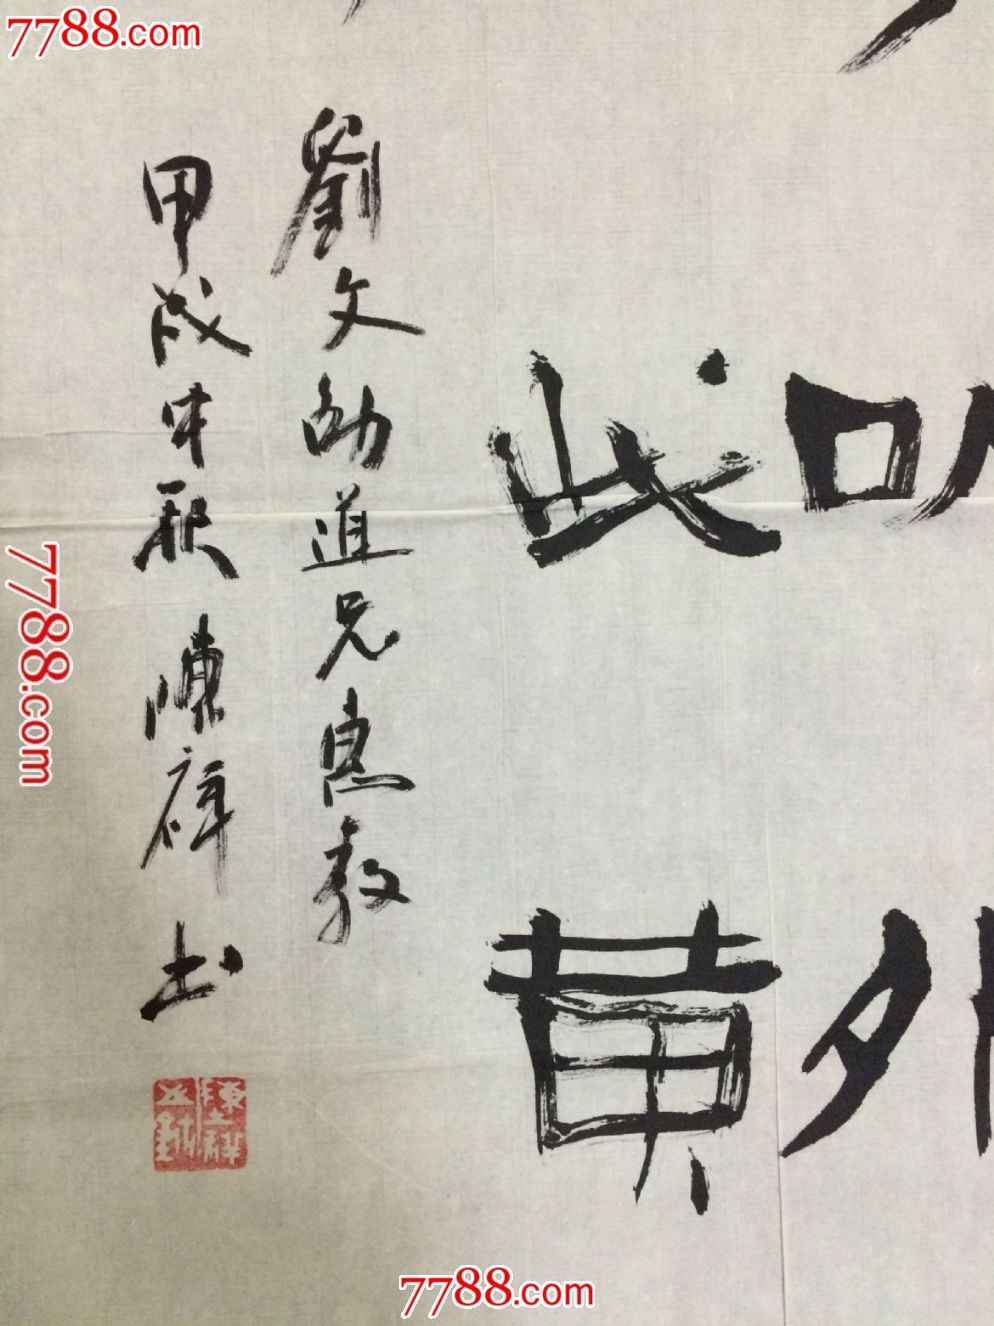 7788.com
此
黄
外
劉文勋道兄惠教
甲戌中秋 陳祥書
7788.com
7788.com